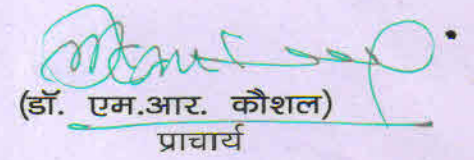 (डॉ. एम.आर. कौशल)
प्राचार्य